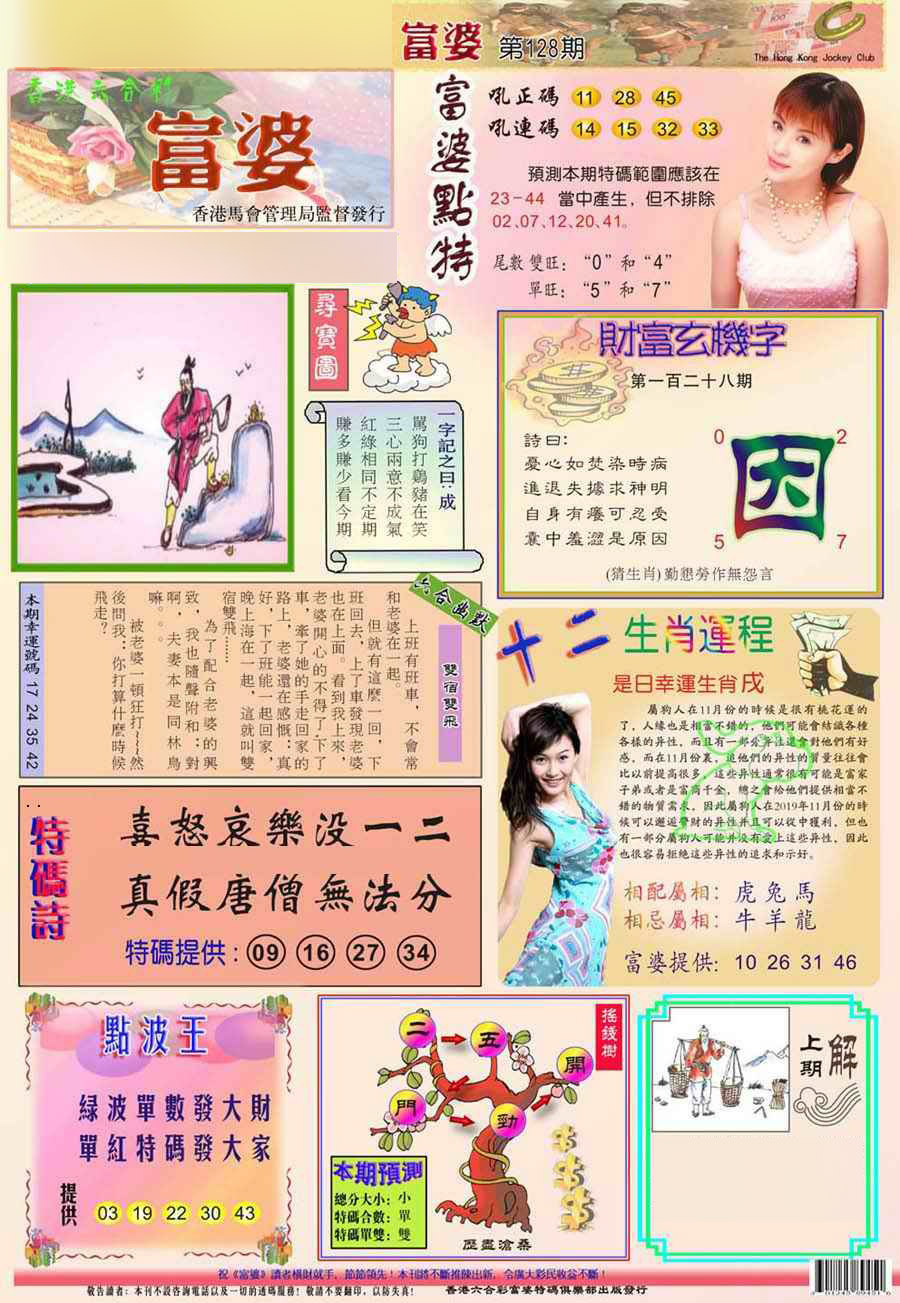 富婆 第128期
The Hong Kong Jockey Club
香港六合彩
富婆
香港馬會管理局監督發行
富婆點特
吼正碼 11 28 45
吼連碼 14 15 32 33
預測本期特碼範圍應該在
23-44 當中產生，但不排除
02、07、12、20、41。
尾數雙旺：“0”和“4”
單旺：“5”和“7”
尋寶圖
一字記之曰：成
罵狗打鷄豬在笑
三心兩意不成氣
紅綠相同不定期
賺多賺少看今期
財富玄機字
第一百二十八期
詩曰：
憂心如焚染時病
進退失據求神明
自身有癢可忍受
囊中羞澀是原因
0 2
因
5 7
(猜生肖)勤懇勞作無怨言
六合幽默
雙宿雙飛
上班有班車，不會常
和老婆在一起。
但就有這麼一回，下
班回去，上了車發現老婆
也在上面。看到我上來，
老婆開心的不得了，下了
車，牽了她的手走回家的
路上，老婆還在感慨：真
好，下了班能一起回家，
晚上海在一起，這就叫雙
宿雙飛……
為了配合老婆的興
致，我也隨聲附和：對
啊，夫妻本是同林鳥
嘛。。。
被老婆一頓狂打~~~然
後問我：你打算什麼時候
飛走？
本期幸運號碼 17 24 35 42
十二生肖運程
是日幸運生肖戌
屬狗人在11月份的時候是很有桃花運的
了，人緣也是相當不錯的，他們可能會結識各種
各樣的异性，而且有一部分异性還會對他們有好
感，而在11月份裏，追他們的异性的質量往往會
比以前提高很多，這些异性通常很有可能是富家
子弟或者是富商千金，總之會給他們提供相當不
錯的物質需求，因此屬狗人在2019年11月份的時
候可以邂逅多財的异性并且可以從中獲利，但也
有一部分屬狗人可能并没有愛上這些异性，因此
也很容易拒絶這些异性的追求和示好。
相配屬相：虎兔馬
相忌屬相：牛羊龍
富婆提供：10 26 31 46
特碼詩
喜怒哀樂没一二
真假唐僧無法分
特碼提供：09 16 27 34
點波王
緑波單數發大財
單紅特碼發大家
提供 03 19 22 30 43
搖錢樹
二 五 門 勁 開
本期預測
總分大小：小
特碼合數：單
特碼單雙：雙
歷盡滄桑
上期解
祝《富婆》讀者橫財就手，節節領先！本刊將不斷推陳出新，令廣大彩民收益不斷！
敬告讀者：本刊不設咨詢電話以及一切的透碼服務！敬請不要翻印，以防失真！
香港六合彩富婆特碼俱樂部出版發行